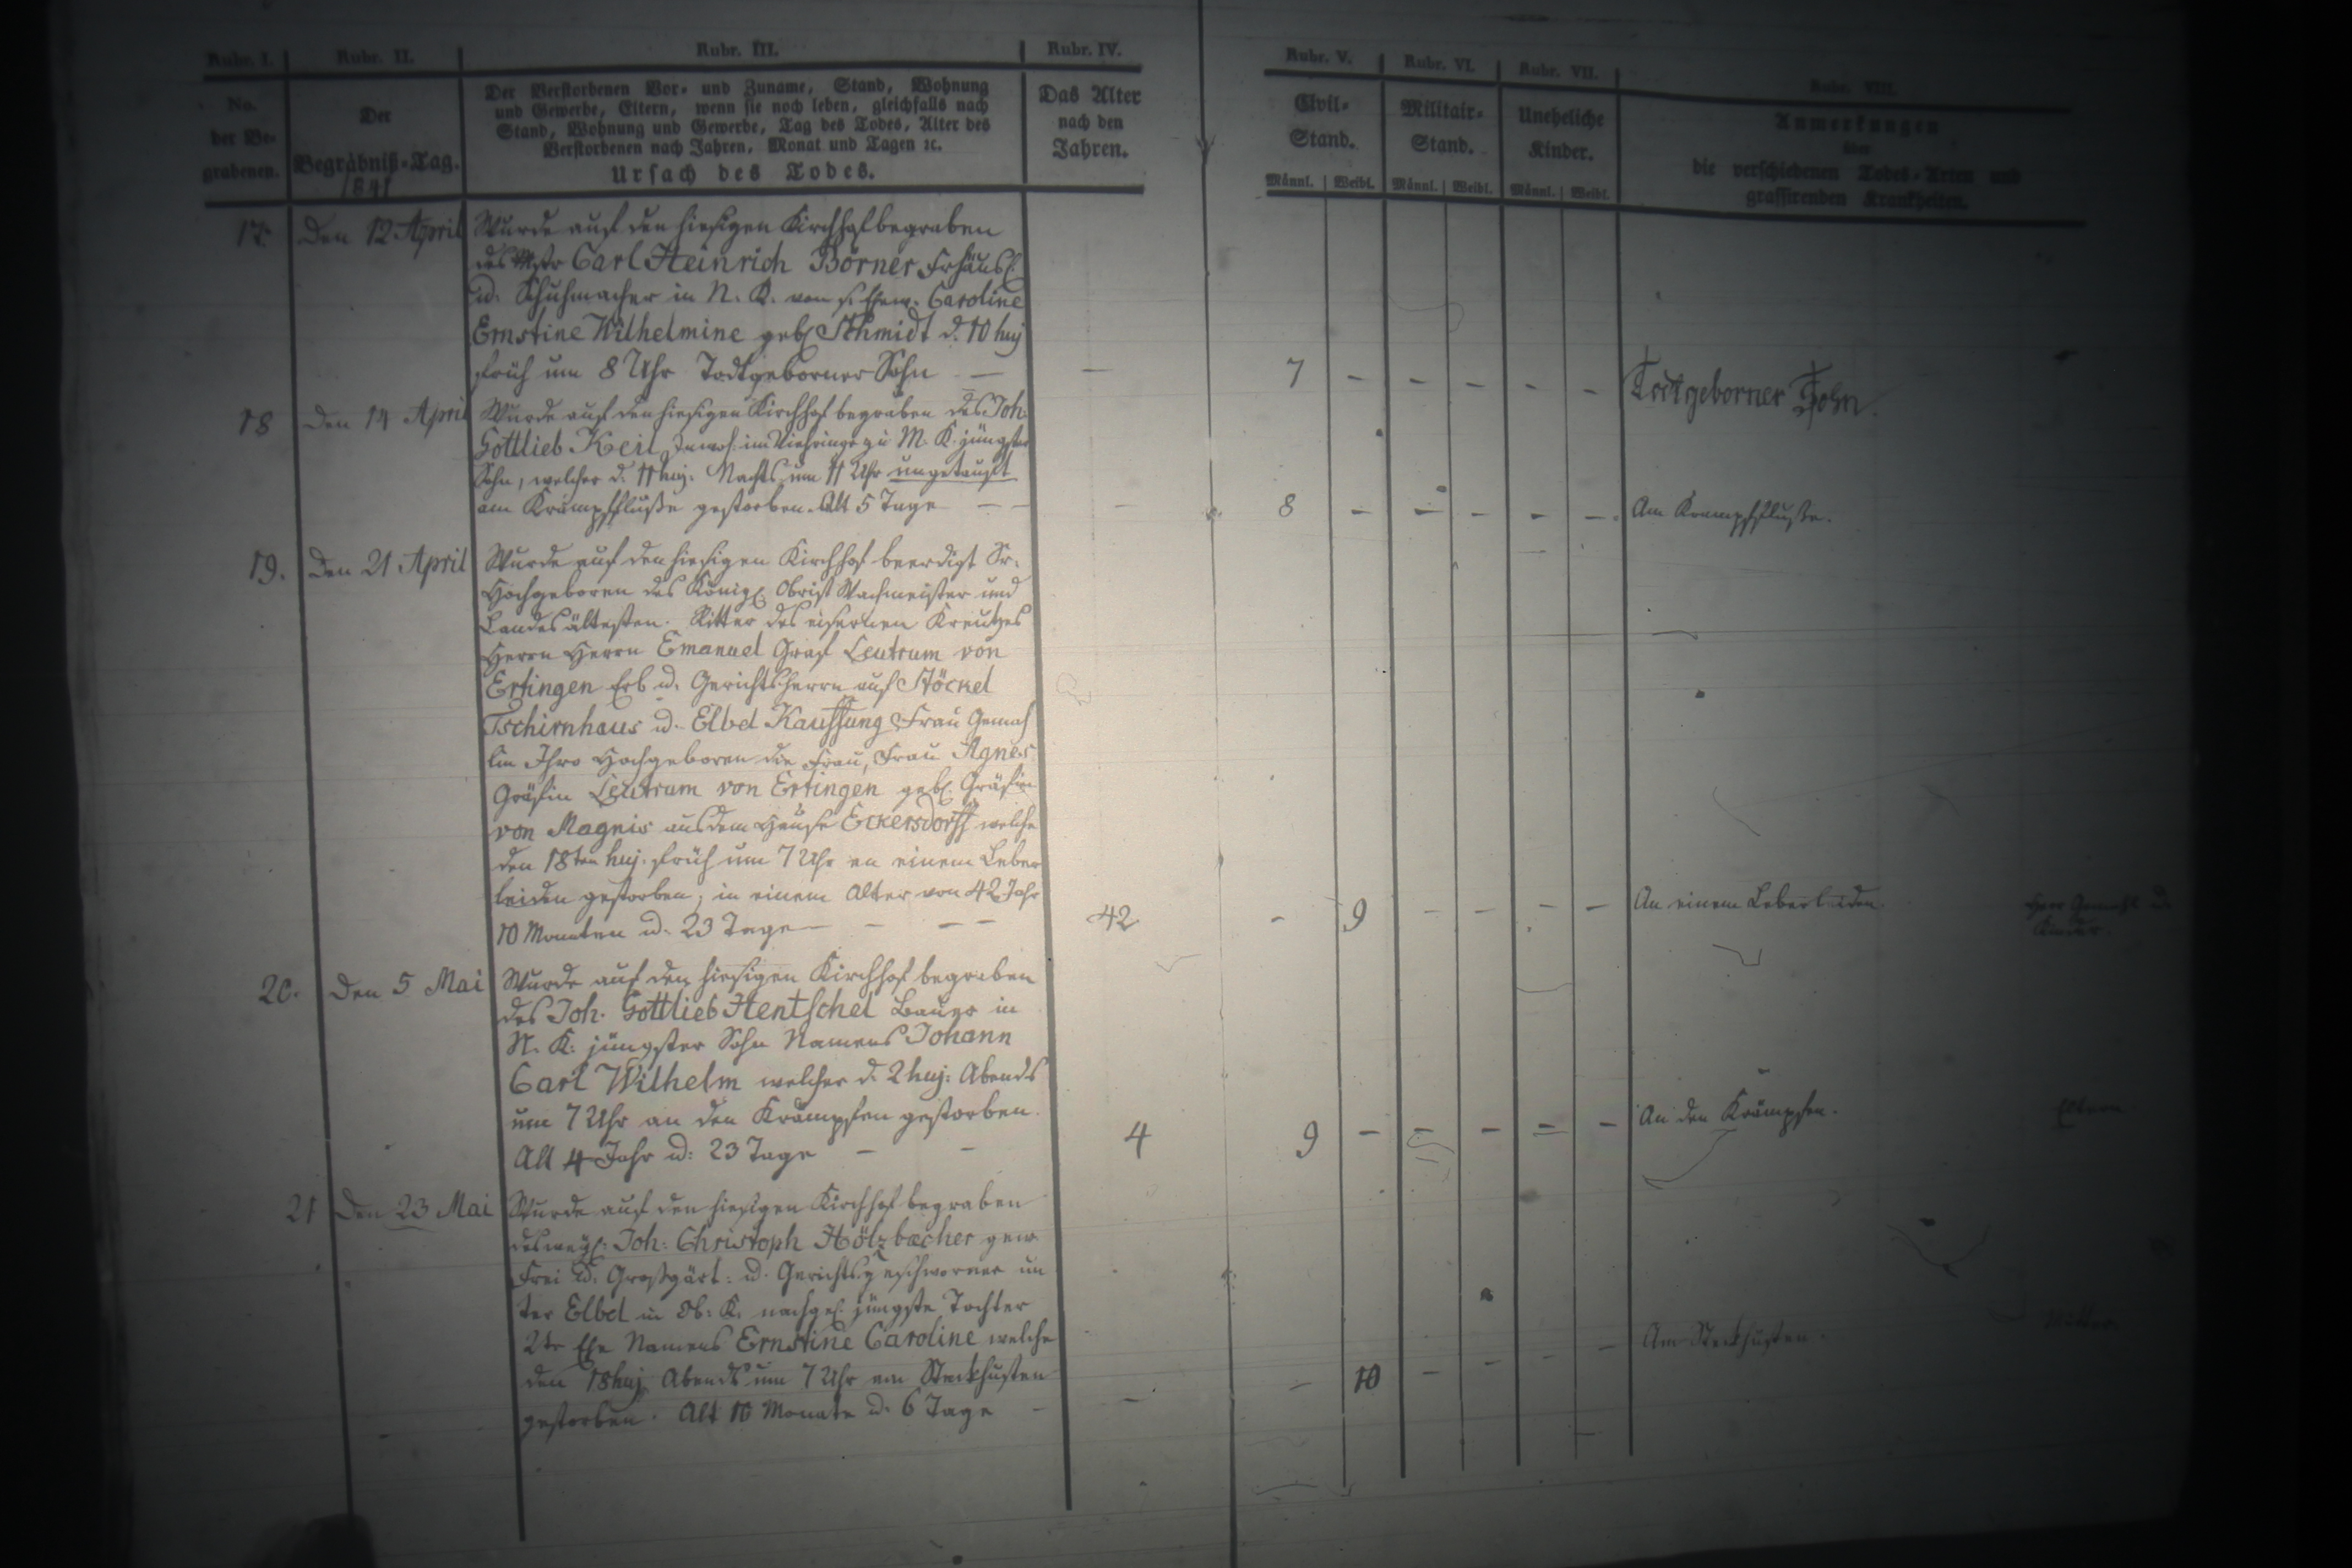 Rubr. I. Rubr. II. Rubr. III. Rubr. IV. Rubr. V. Rubr. VI. Rubr. VII. Rubr. VIII.
No.
der Be-
grabenen.
Der
Begräbniß-Tag.
1841
Der Verstorbenen Vor- und Zuname, Stand, Wohnung
und Gewerbe, Eltern, wenn sie noch leben, gleichfalls nach
Stand, Wohnung und Gewerbe, Tag des Todes, Alter des
Verstorbenen nach Jahren, Monat und Tagen ꝛc.
Ursach des Todes.
Das Alter
nach den
Jahren.
Civil-
Stand.
Männl. Weibl.
Militair-
Stand.
Männl. Weibl.
Uneheliche
Kinder.
Männl. Weibl.
Anmerkungen
über
die verschiedenen Todes-Arten und
grassirenden Krankheiten.
17. Den 12 April Wurde auf den hiesigen Kirchhof begraben
des Mstr Carl Heinrich Börner Frhäusl.
u. Schuhmacher in N. K. von s. Ehew. Caroline
Ernstine Wilhelmine geb. Schmidt d. 10 huj
früh um 8 Uhr Todtgeborner Sohn — — 7 - - - - - Todtgeborner Sohn.
18 Den 14 April Wurde auf den hiesigen Kirchhof begraben des Joh.
Gottlieb Keil Inwoh. im Viehringe zu M. K. jüngster
Sohn, welcher d. 11 huj. Nachts um 11 Uhr ungetauft
am Krampfflusse gestorben. Alt 5 Tage — — — 8 - - - - - Am Krampfflusse.
19. Den 21 April Wurde auf den hiesigen Kirchhof beerdigt Sr.
Hochgeboren des Königl. Obrist Wachmeister und
Landesältesten. Ritter des eisernen Kreutzes
Herrn Herrn Emanuel Graf Leutrum von
Ertingen Erb u. Gerichtsherrn auf Stöckel
Tschirnhaus u. Elbel Kauffung Frau Gemah
lin Ihro Hochgeboren die Frau, Frau Agnes
Gräfin Leutrum von Ertingen geb. Gräfin
von Magnis aus dem Hause Eckersdorff welche
den 18ten huj. früh um 7 Uhr an einem Leber
leiden gestorben, in einem Alter von 42 Jahr
10 Monaten u. 23 Tage — — — 42 - 9 - - - - An einem Leberleiden. Herr Gemahl u.
Kinder.
20. Den 5 Mai Wurde auf den hiesigen Kirchhof begraben
des Joh. Gottlieb Hentschel Bauer in
N. K. jüngster Sohn Namens Johann
Carl Wilhelm welcher d. 2 huj. Abends
um 7 Uhr an den Krämpfen gestorben.
Alt 4 Jahr u. 23 Tage — — 4 9 - - - - - An den Krämpfen. Eltern
21 Den 23 Mai Wurde auf den hiesigen Kirchhof begraben
des weyl. Joh. Christoph Hölzbecher gew.
Frei u. Großgärt. u. Gerichtsgeschworner un
ter Elbel in Ob. K. nachgel. jüngste Tochter
2ter Ehe Namens Ernstine Caroline welche
den 18 huj. Abends um 7 Uhr am Steckhusten
gestorben. Alt 10 Monate u. 6 Tage - — - 10 - - - - Am Steckhusten. Mutter